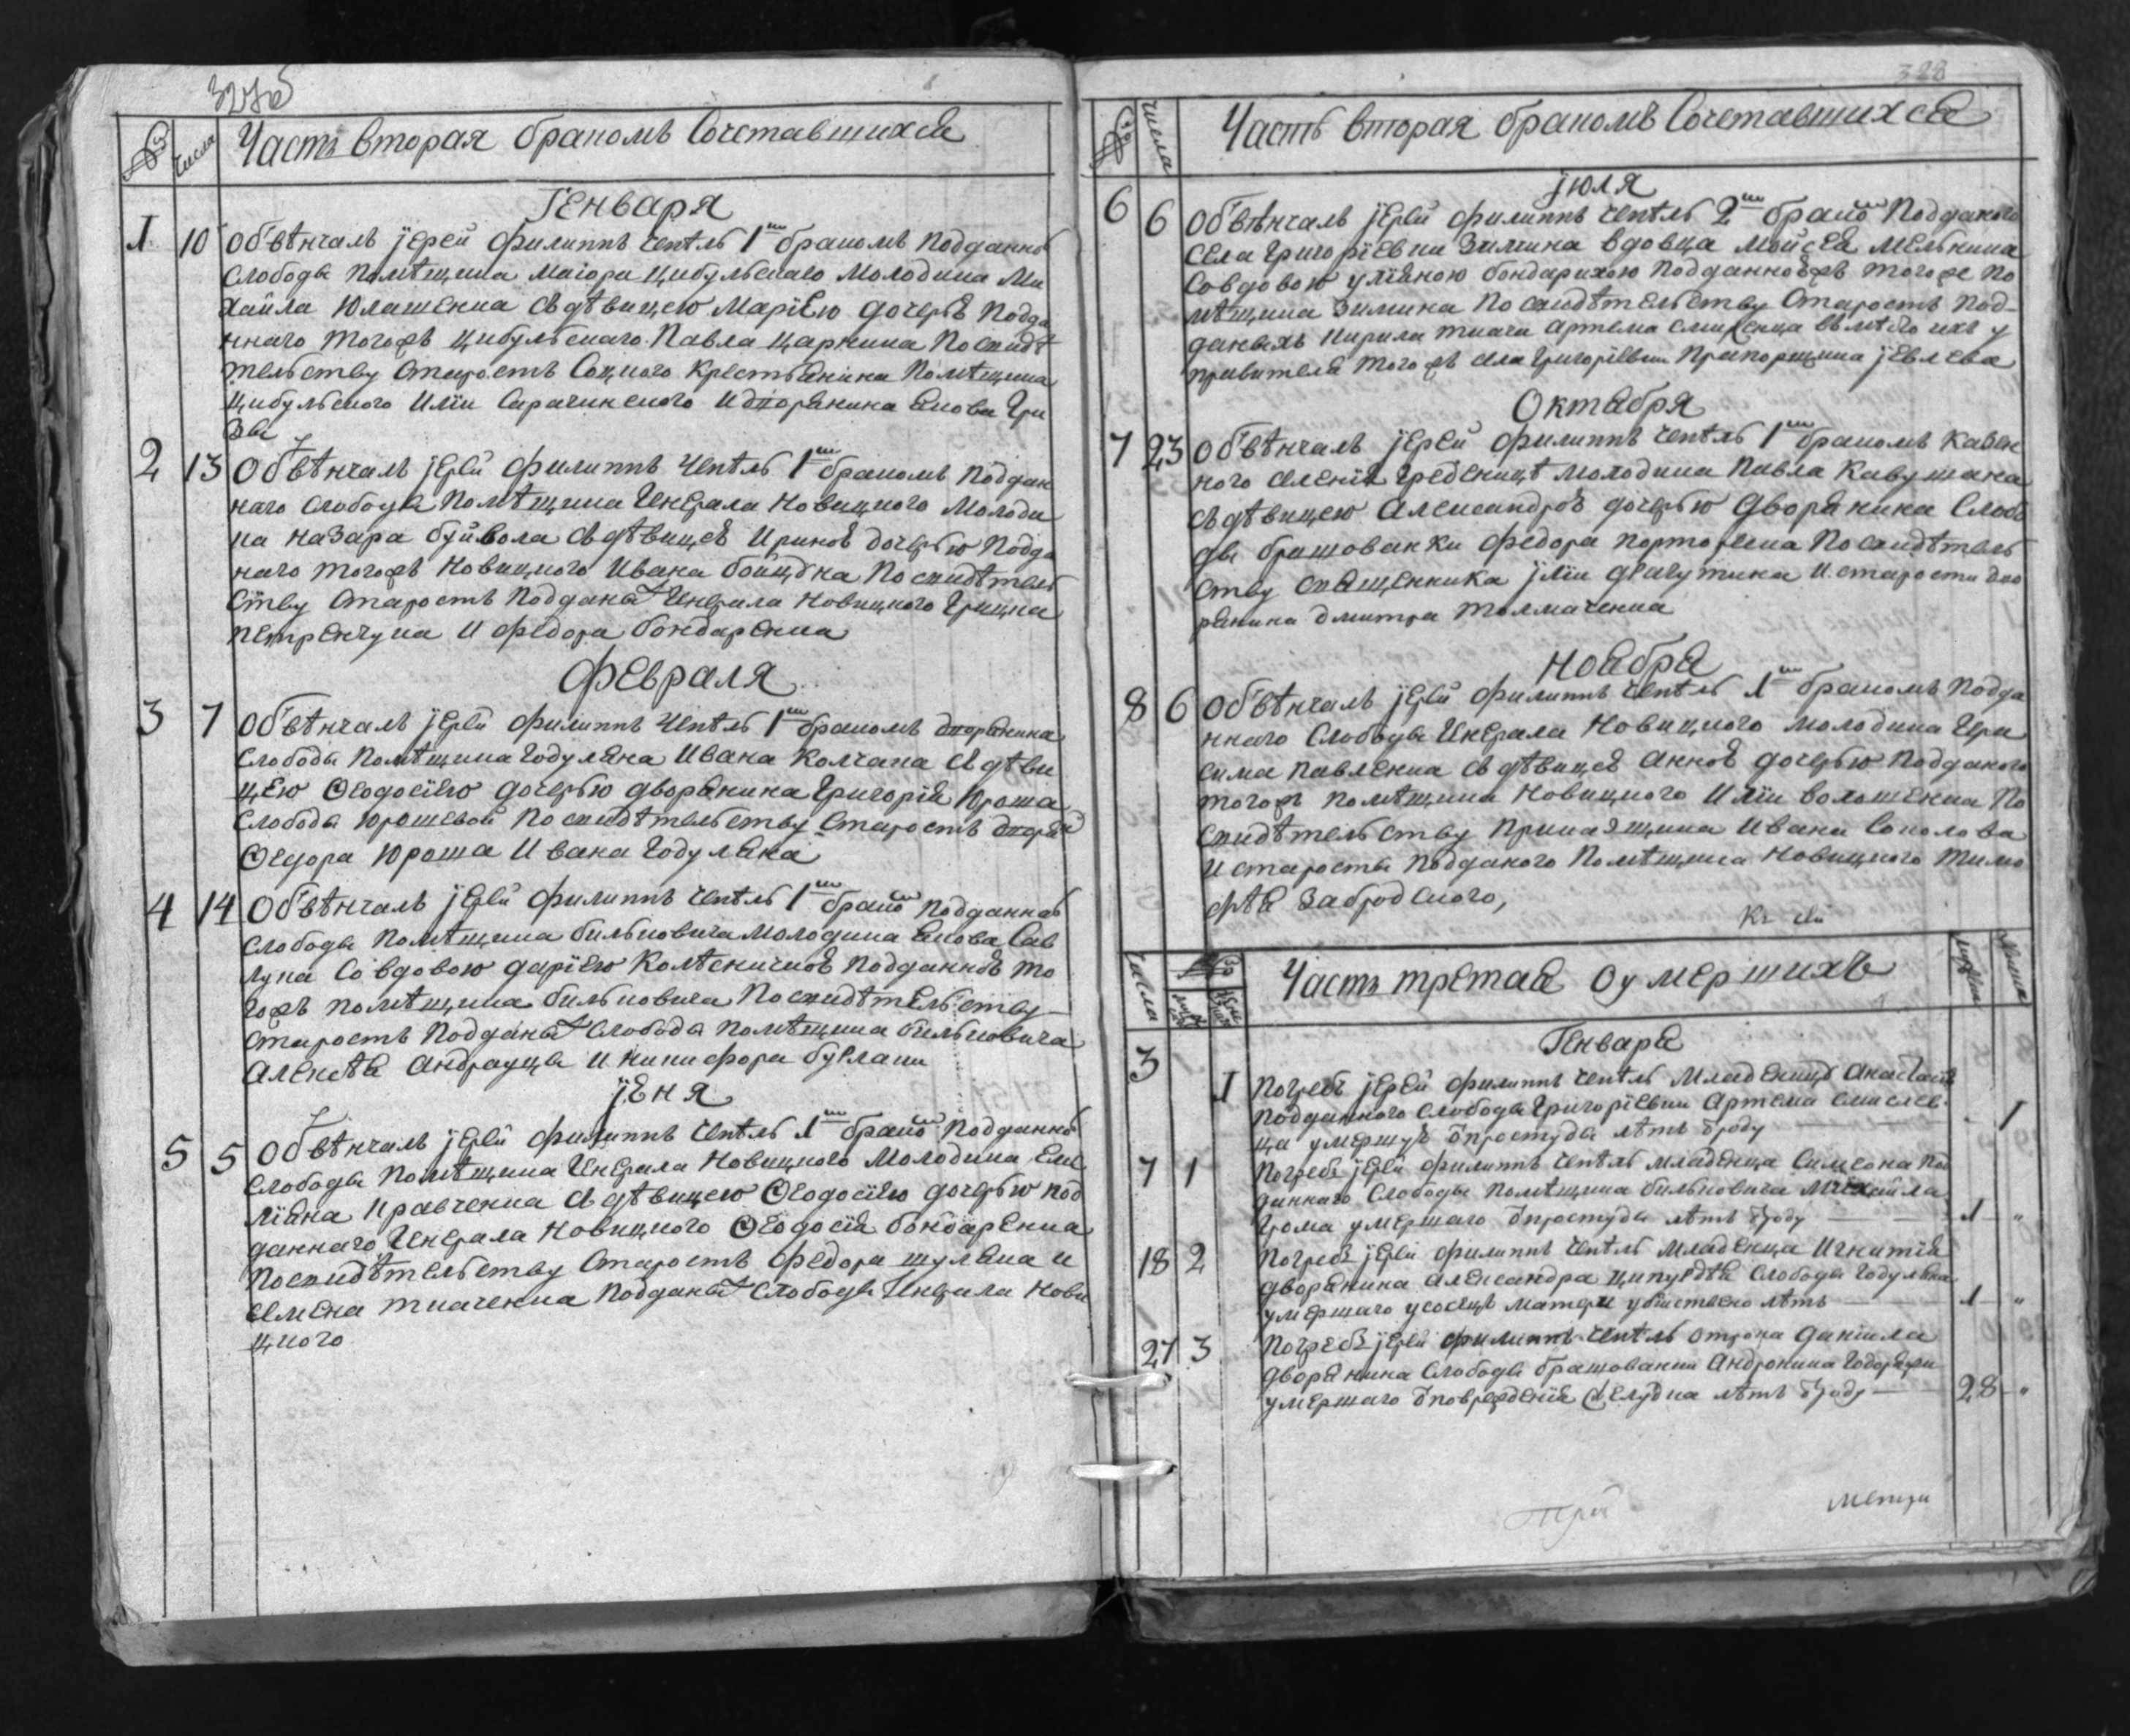 327об
№ Числа Часть вторая бракомъ Сочетавшихся
Генваря
1 10 Обвѣнчалъ іерей Филиппъ Чепѣль 1мъ бракомъ подданно
слободы помѣщика маіора Цибульскаго молодика Ми
хайла Юлашенка съ дѣвицею Маріею дочерь подда
ннаго тогожъ Цибульскаго Павла Царкина по свидѣ
тельству старостъ Крестьянина помѣщика
Цибульского Иліи Сарачинского и дворянина Якова Гри
звы
2 13 Обвѣнчалъ іерей Филиппъ Чепѣль 1мъ бракомъ поддан
наго слободы помѣщика Генерала Новицкого молоди
ка Назара Буйвола съ дѣвицеѣ Ириноѣ дочерью подда
наго тогожъ Новицкого Ивана по свидѣтель
ству старостъ подданыхъ Генерала Новицкого Грицка
Петренчука и Федора Бондаренка
Февраля
3 7 Обвѣнчалъ іерей Филиппъ Чепѣль 1мъ бракомъ дворянина
слободы помѣщика Годуляна Ивана Колчана съ дѣви
цею Ѳеодосіею дочерью дворянина Григорія Юроша
слободы Юрошевой по свидѣтельству старостъ дворя
Ѳеодора Юроша Ивана Годуляна
4 14 Обвѣнчалъ іерей Филиппъ Чепѣль 1мъ бракомъ подданно
слободы помѣщика Бильковича молодика Якова Сав
лука со вдовою Даріею Колѣсничноѣ подданноѣ то
гожъ помѣщика Бильковича по свидѣтельству
старостъ подданыхъ слободы помѣщика Бильковича
Алексѣя Андрауца и Никифора Буглаки
іюня
5 5 Обвѣнчалъ іерей Филиппъ Чепѣль 1мъ бракомъ подданно
слободы помѣщика Генерала Новицкого молодика Еме
ліяна Кравченка съ дѣвицею Ѳеодосіею дочерью под
даннаго Генерала Новицкого Ѳеодосія Бондаренка
по свидѣтельству старостъ Федора Шуляка и
Семена Ткаченка подданыхъ слободы Генерала Нови
цкого
328
№ числа Часть вторая бракомъ Сочетавшихся
іюля
6 6 Обвѣнчалъ іерей Филиппъ Чепѣль 2мъ бракомъ подданого
села Григоріевки Зимина вдовца Мойсея Мельника
со вдовою Уліяною Бондарихою подданноѣ тогоже по
мѣщика Зимина по свидѣтельству старостъ под
даныхъ Кирила Ткача Артема
правителя тогожъ села Григоріевки прапорщика Іевлева
Октября
7 23 Обвѣнчалъ іерей Филиппъ Чепѣль 1мъ бракомъ казен
ного селенія Гребеницѣ молодика Павла Кавушана
съ дѣвицею Александроѣ дочерью дворянина слобо
ды Брашованки Федора Портоленка по свидѣтель
ству священника Іліи и старости дво
рянина Дмитра Толмаченка
Ноября
8 6 Обвѣнчалъ іерей Филиппъ Чепѣль 1мъ бракомъ подда
ннаго слободы Генерала Новицкого молодика Гера
сима Павленка съ дѣвицеѣ Анноѣ дочерью подданого
тогожъ помѣщика Новицкого Иліи Волошенка по
свидѣтельству прикащика Ивана Соколова
и старосты подданого помѣщика Новицкого Тимо
фѣя Забродского,
числа Часть третая О умершихъ
Генваря
3 1 Погребъ іерей Филиппъ Чепѣль младеницѣ Анастасіѣ
подданного слободы Григоріевки Артема
ца умершуѣ ѿ простуды лѣтъ ѿ роду — 1
7 1 Погребъ іерей Филиппъ Чепѣль младенца Симеона под
даннаго слободы помѣщика Бильковича Михайла
Грома умершаго ѿ простуды лѣтъ ѿ роду — 1 "
18 2 Погребъ іерей Филиппъ Чепѣль младенца Игнатія
дворянина Александра слободы Годуляна
умершаго матери лѣтъ — 1 "
27 3 Погребъ іерей Филиппъ Чепѣль отрока Даніила
дворянина слободы Брашованки Андроника
умершаго ѿ поврежденія желудка лѣтъ ѿ роду — 28 "